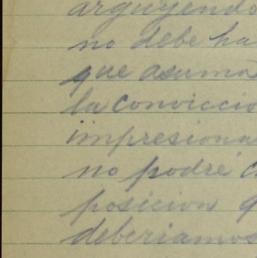 arguyendo
no debe ha
que asuma
la conviccio
impresiona
no podré c
posicion q
deberiamos